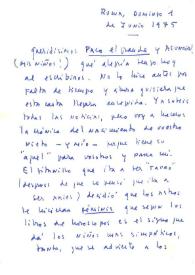 Roma, Domingo 1
de Junio 1975
Queridísimos Paco el grande y Asunción
(mis niños!) que alegría tengo hoy
al escribiros. No lo hice antes por
falta de tiempo y ahora quisiera que
esta carta llegara enseguida. Ya sabéis
todas las noticias, pero voy a haceros
la crónica del nacimiento de vuestro
nieto - y mío - porque tiene su
"aquel" para vosotros y para mí.
El bichito que iba a ser "Tauro"
después de que se pensó que iba a
ser aries) decidió que los astros
le hicieran géminis que según los
libros de horóscopos es el signo que
da los niños más simpáticos,
tanto, que se advierte a los